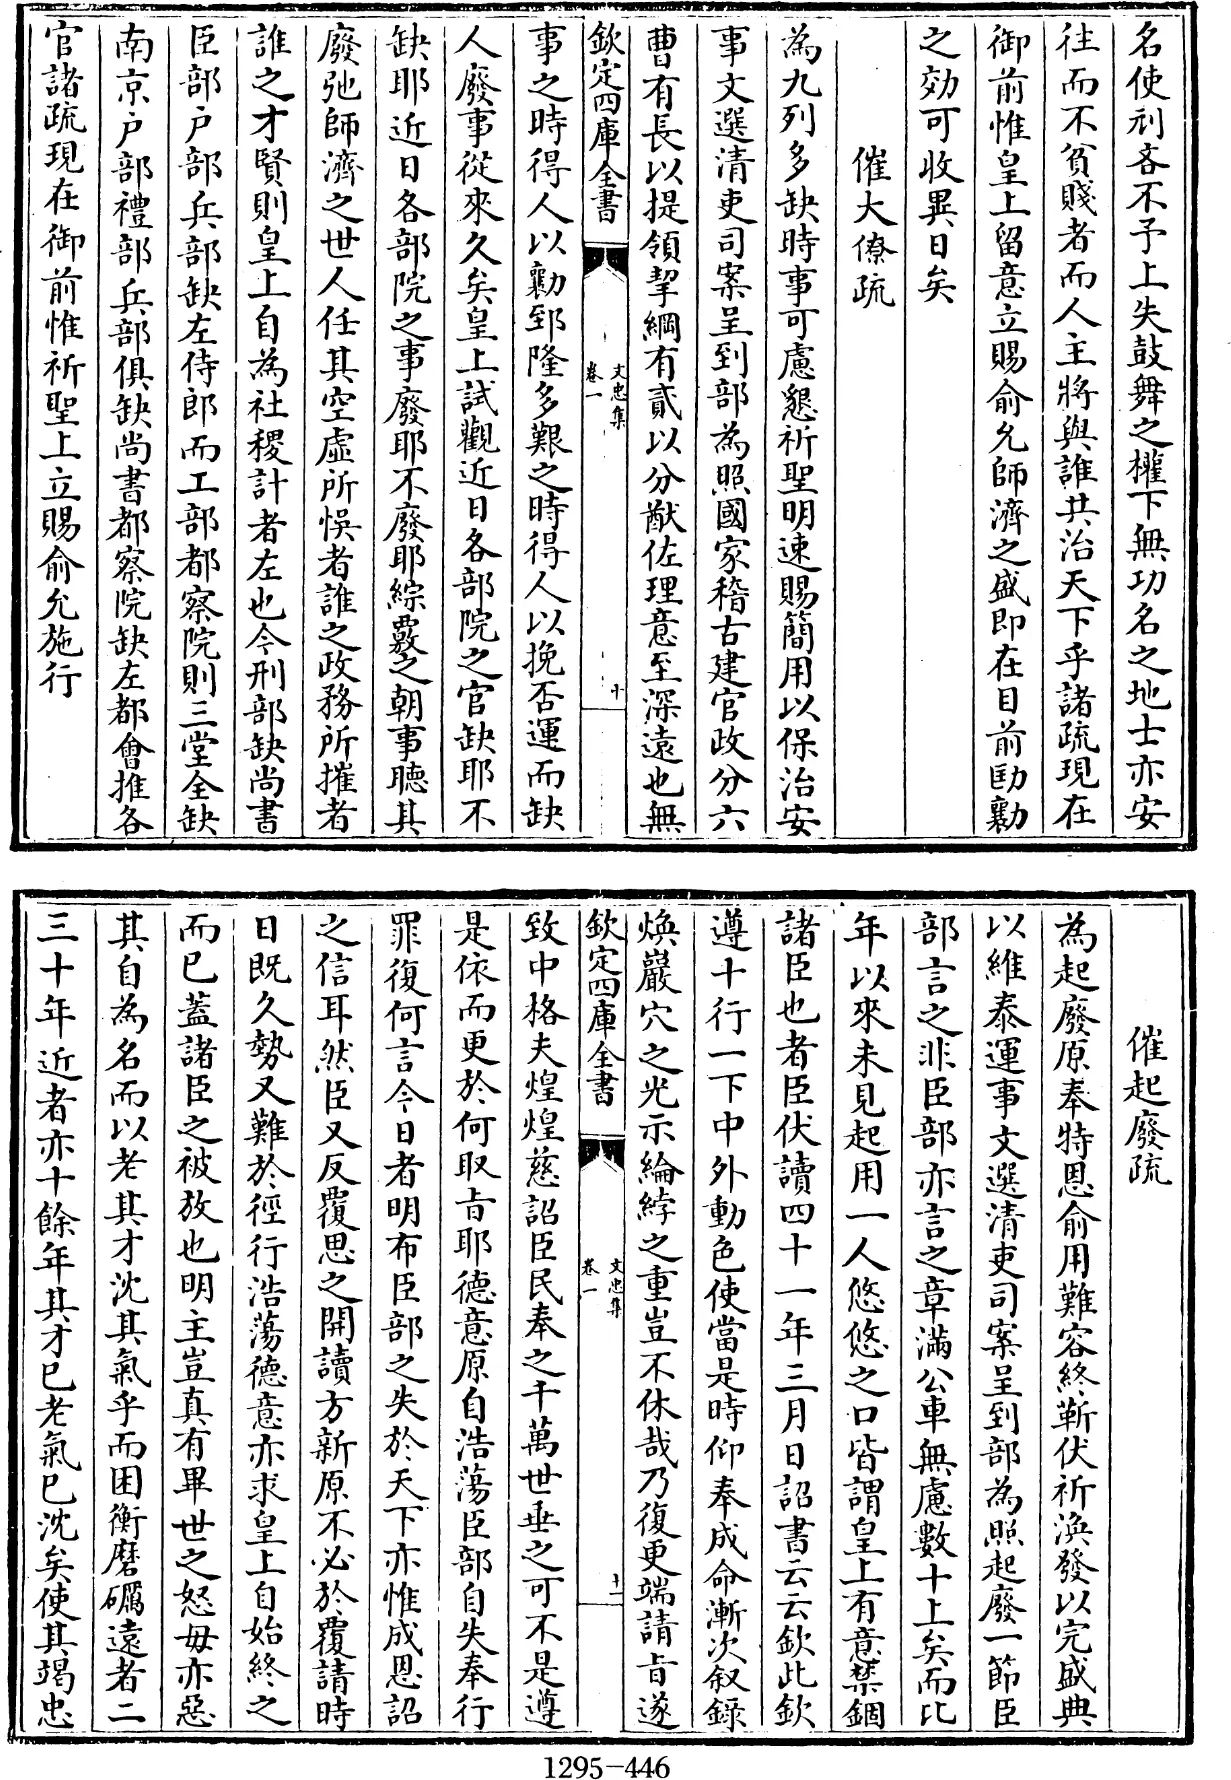 名使刓吝不予上失鼓舞之權下無功名之地士亦安
往而不貧賤者而人主將與誰共治天下乎諸疏現在
御前惟皇上留意立賜俞允師濟之盛即在目前劻勷
之効可收異日矣
催大僚疏
為九列多缺時事可慮懇祈聖明速賜簡用以保治安
事文選清吏司案呈到部為照國家稽古建官政分六
曹有長以提領挈綱有貳以分猷佐理意至深遠也無
欽定四庫全書
文忠集
卷一
十
事之時得人以勷郅隆多艱之時得人以挽否運而缺
人廢事從來久矣皇上試觀近日各部院之官缺耶不
缺耶近日各部院之事廢耶不廢耶綜覈之朝事聽其
廢弛師濟之世人任其空虛所悞者誰之政務所摧者
誰之才賢則皇上自為社稷計者左也今刑部缺尚書
臣部戶部兵部缺左侍郎而工部都察院則三堂全缺
南京戶部禮部兵部俱缺尚書都察院缺左都會推各
官諸疏現在御前惟祈聖上立賜俞允施行
催起廢疏
為起廢原奉特恩俞用難容終靳伏祈渙發以完盛典
以維泰運事文選清吏司案呈到部為照起廢一節臣
部言之非臣部亦言之章滿公車無慮數十上矣而比
年以來未見起用一人悠悠之口皆謂皇上有意禁錮
諸臣也者臣伏讀四十一年三月日詔書云云欽此欽
遵十行一下中外動色使當是時仰奉成命漸次叙錄
煥巖穴之光示綸綍之重豈不休哉乃復更端請㫖遂
欽定四庫全書
文忠集
卷一
十一
致中格夫煌煌慈詔臣民奉之千萬世垂之可不是遵
是依而更於何取㫖耶德意原自浩蕩臣部自失奉行
罪復何言今日者明布臣部之失於天下亦惟成恩詔
之信耳然臣又反覆思之開讀方新原不必於覆請時
日既久勢又難於徑行浩蕩德意亦求皇上自始終之
而已蓋諸臣之被放也明主豈真有畢世之怒毋亦惡
其自為名而以老其才沈其氣乎而困衡磨礪遠者二
三十年近者亦十餘年其才已老氣已沈矣使其竭忠
1295-446